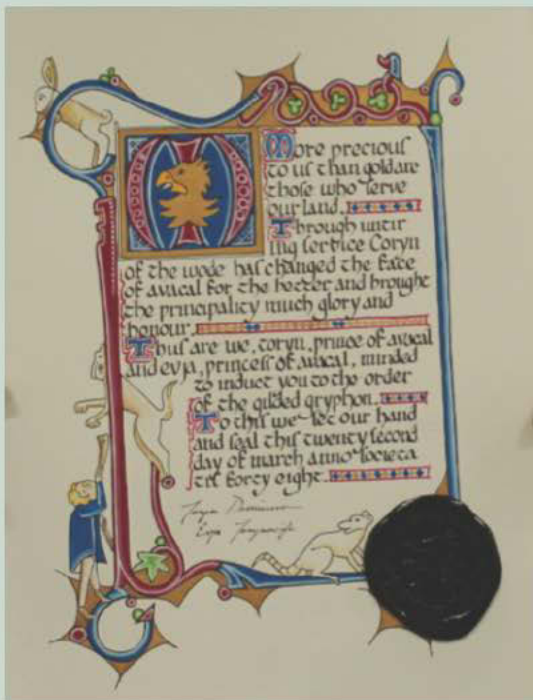 More precious
to us than gold are
those who serve
our land.
Through untir
ing service Coryn
of the wode has changed the face
of avacal for the better and brought
the principality much glory and
honour.
Thus are we, coryn, prince of avacal
and evja, princess of avacal, minded
to induct you to the order
of the gilded gryphon.
To this we set our hand
and seal this twenty second
day of march anno societa
tis forty eight.